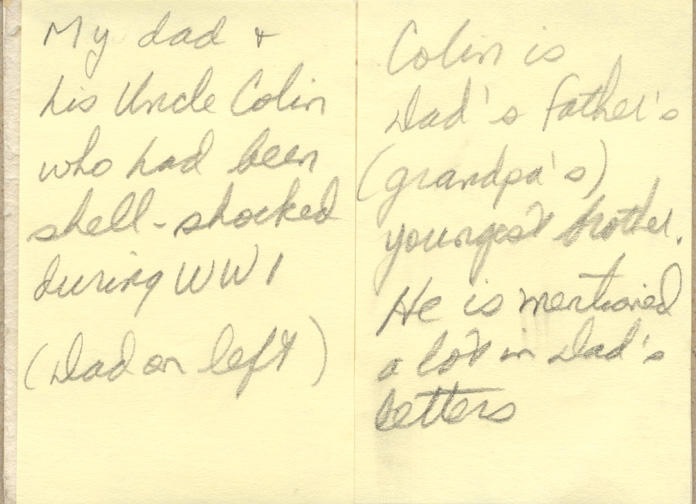 My dad +
his Uncle Colin
who had been
shell-shocked
during WW1
(Dad on left)
Colin is
Dad's father's
(grandpa's)
youngest brother.
He is mentioned
a lot in Dad's
letters